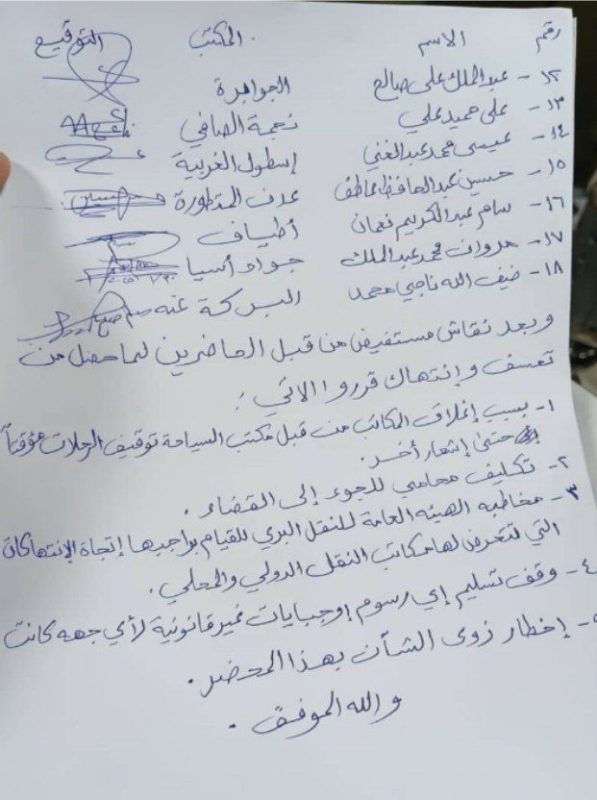 رقم الاسم المكتب التوقيع
١٢- عبدالملك علي صالح الجواهرة
١٣- علي حميد علي نجمة الصافي
١٤- عيسى محمد عبدالغني إسطول الغربية
١٥- حسين عبدالحافظ عاطف عدن المتطورة
١٦- سامر عبدالكريم نعمان أطياف
١٧- مروان محمد عبدالملك جواد أسيا
١٨- ضيف الله ناجي محمد البركة عنه
وبعد نقاش مستفيض من قبل الحاضرين لما حصل من
تعسف وإنتهاك قرروا الاتي :
١- بسبب إغلاق المكاتب من قبل مكتب السياحة توقيف الرحلات مؤقتاً
حتى إشعار أخر.
٢- تكليف محامي للجوء إلى القضاء .
٣- مخاطبه الهيئه العامة للنقل البري للقيام بواجبها إتجاة الإنتهاكات
التي تتعرض لها مكاتب النقل الدولي والمحلي .
٤- وقف تسليم إي رسوم إوجبايات غير قانونية لأي جهه كانت
٥- إخطار ذوى الشأن بهذا المحضر .
والله الموفق .